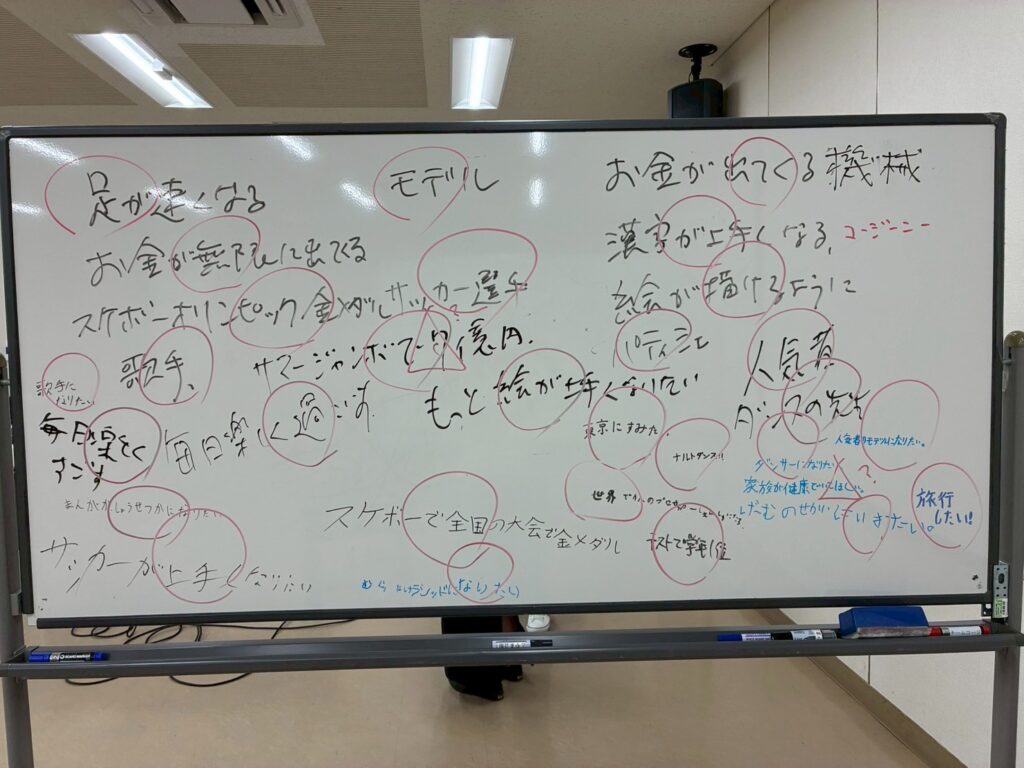 足が速くなる
モデル
お金が出てくる機械
お金が無限に出てくる
漢字が上手くなる、
コージーニー
スケボーオリンピック金メダル
サッカー選手
絵が描けるように
歌手、
サマージャンボで
億円.
パティシエ
人気者
歌手に
なりたい
もっと絵が上手くなりたい
ダンスの先生
毎日楽しく
すごす
毎日楽しく過ごす
東京にすみた
ナルトダンス!!
人気者のモデルになりたい。
ダンサーになりたい
?
家族が健康でいてほしい。
まんがかしょうせつかになりたい
世界
げーむのせかいにいきたい。
旅行
したい!
スケボーで全国の大会で金メダル
テストで学年1位
サッカーが上手くなりたい
になりたい